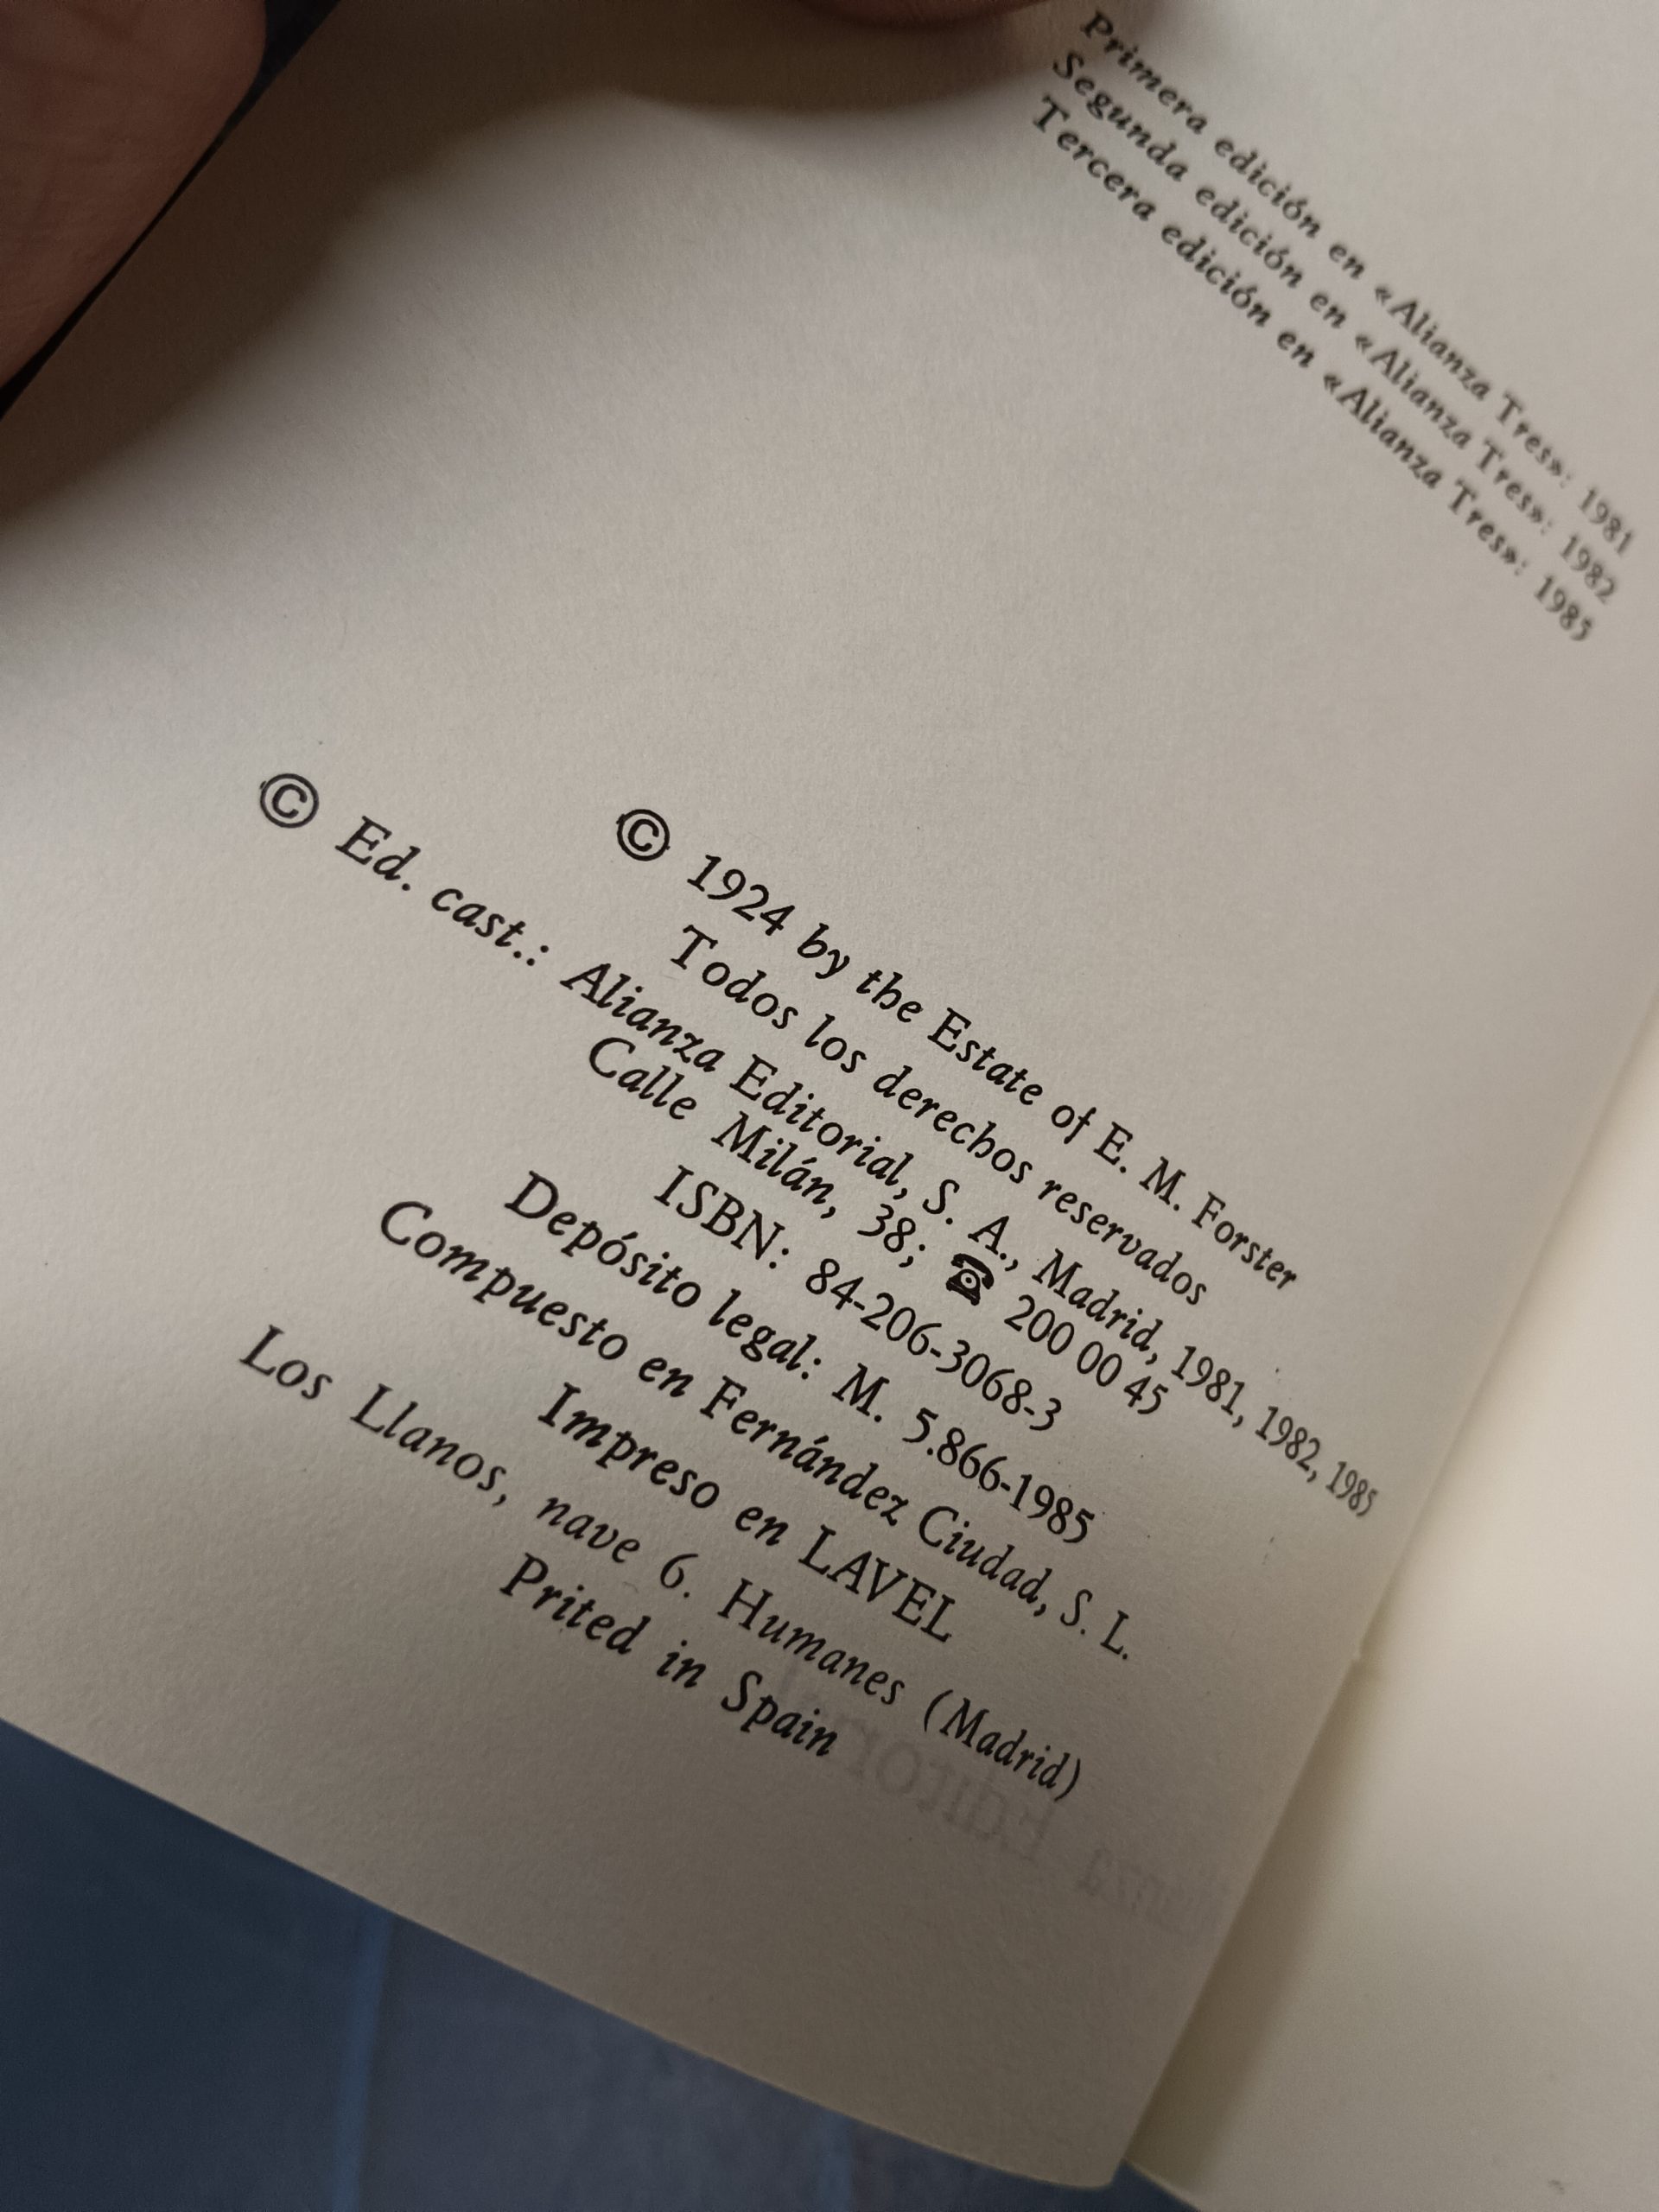 Primera edición en «Alianza Tres»: 1981
Segunda edición en «Alianza Tres»: 1982
Tercera edición en «Alianza Tres»: 1985
© 1924 by the Estate of E. M. Forster
Todos los derechos reservados
© Ed. cast.: Alianza Editorial, S. A., Madrid, 1981, 1982, 1985
Calle Milán, 38; ☎ 200 00 45
ISBN: 84-206-3068-3
Depósito legal: M. 5.866-1985
Compuesto en Fernández Ciudad, S. L.
Impreso en LAVEL
Los Llanos, nave 6. Humanes (Madrid)
Prited in Spain